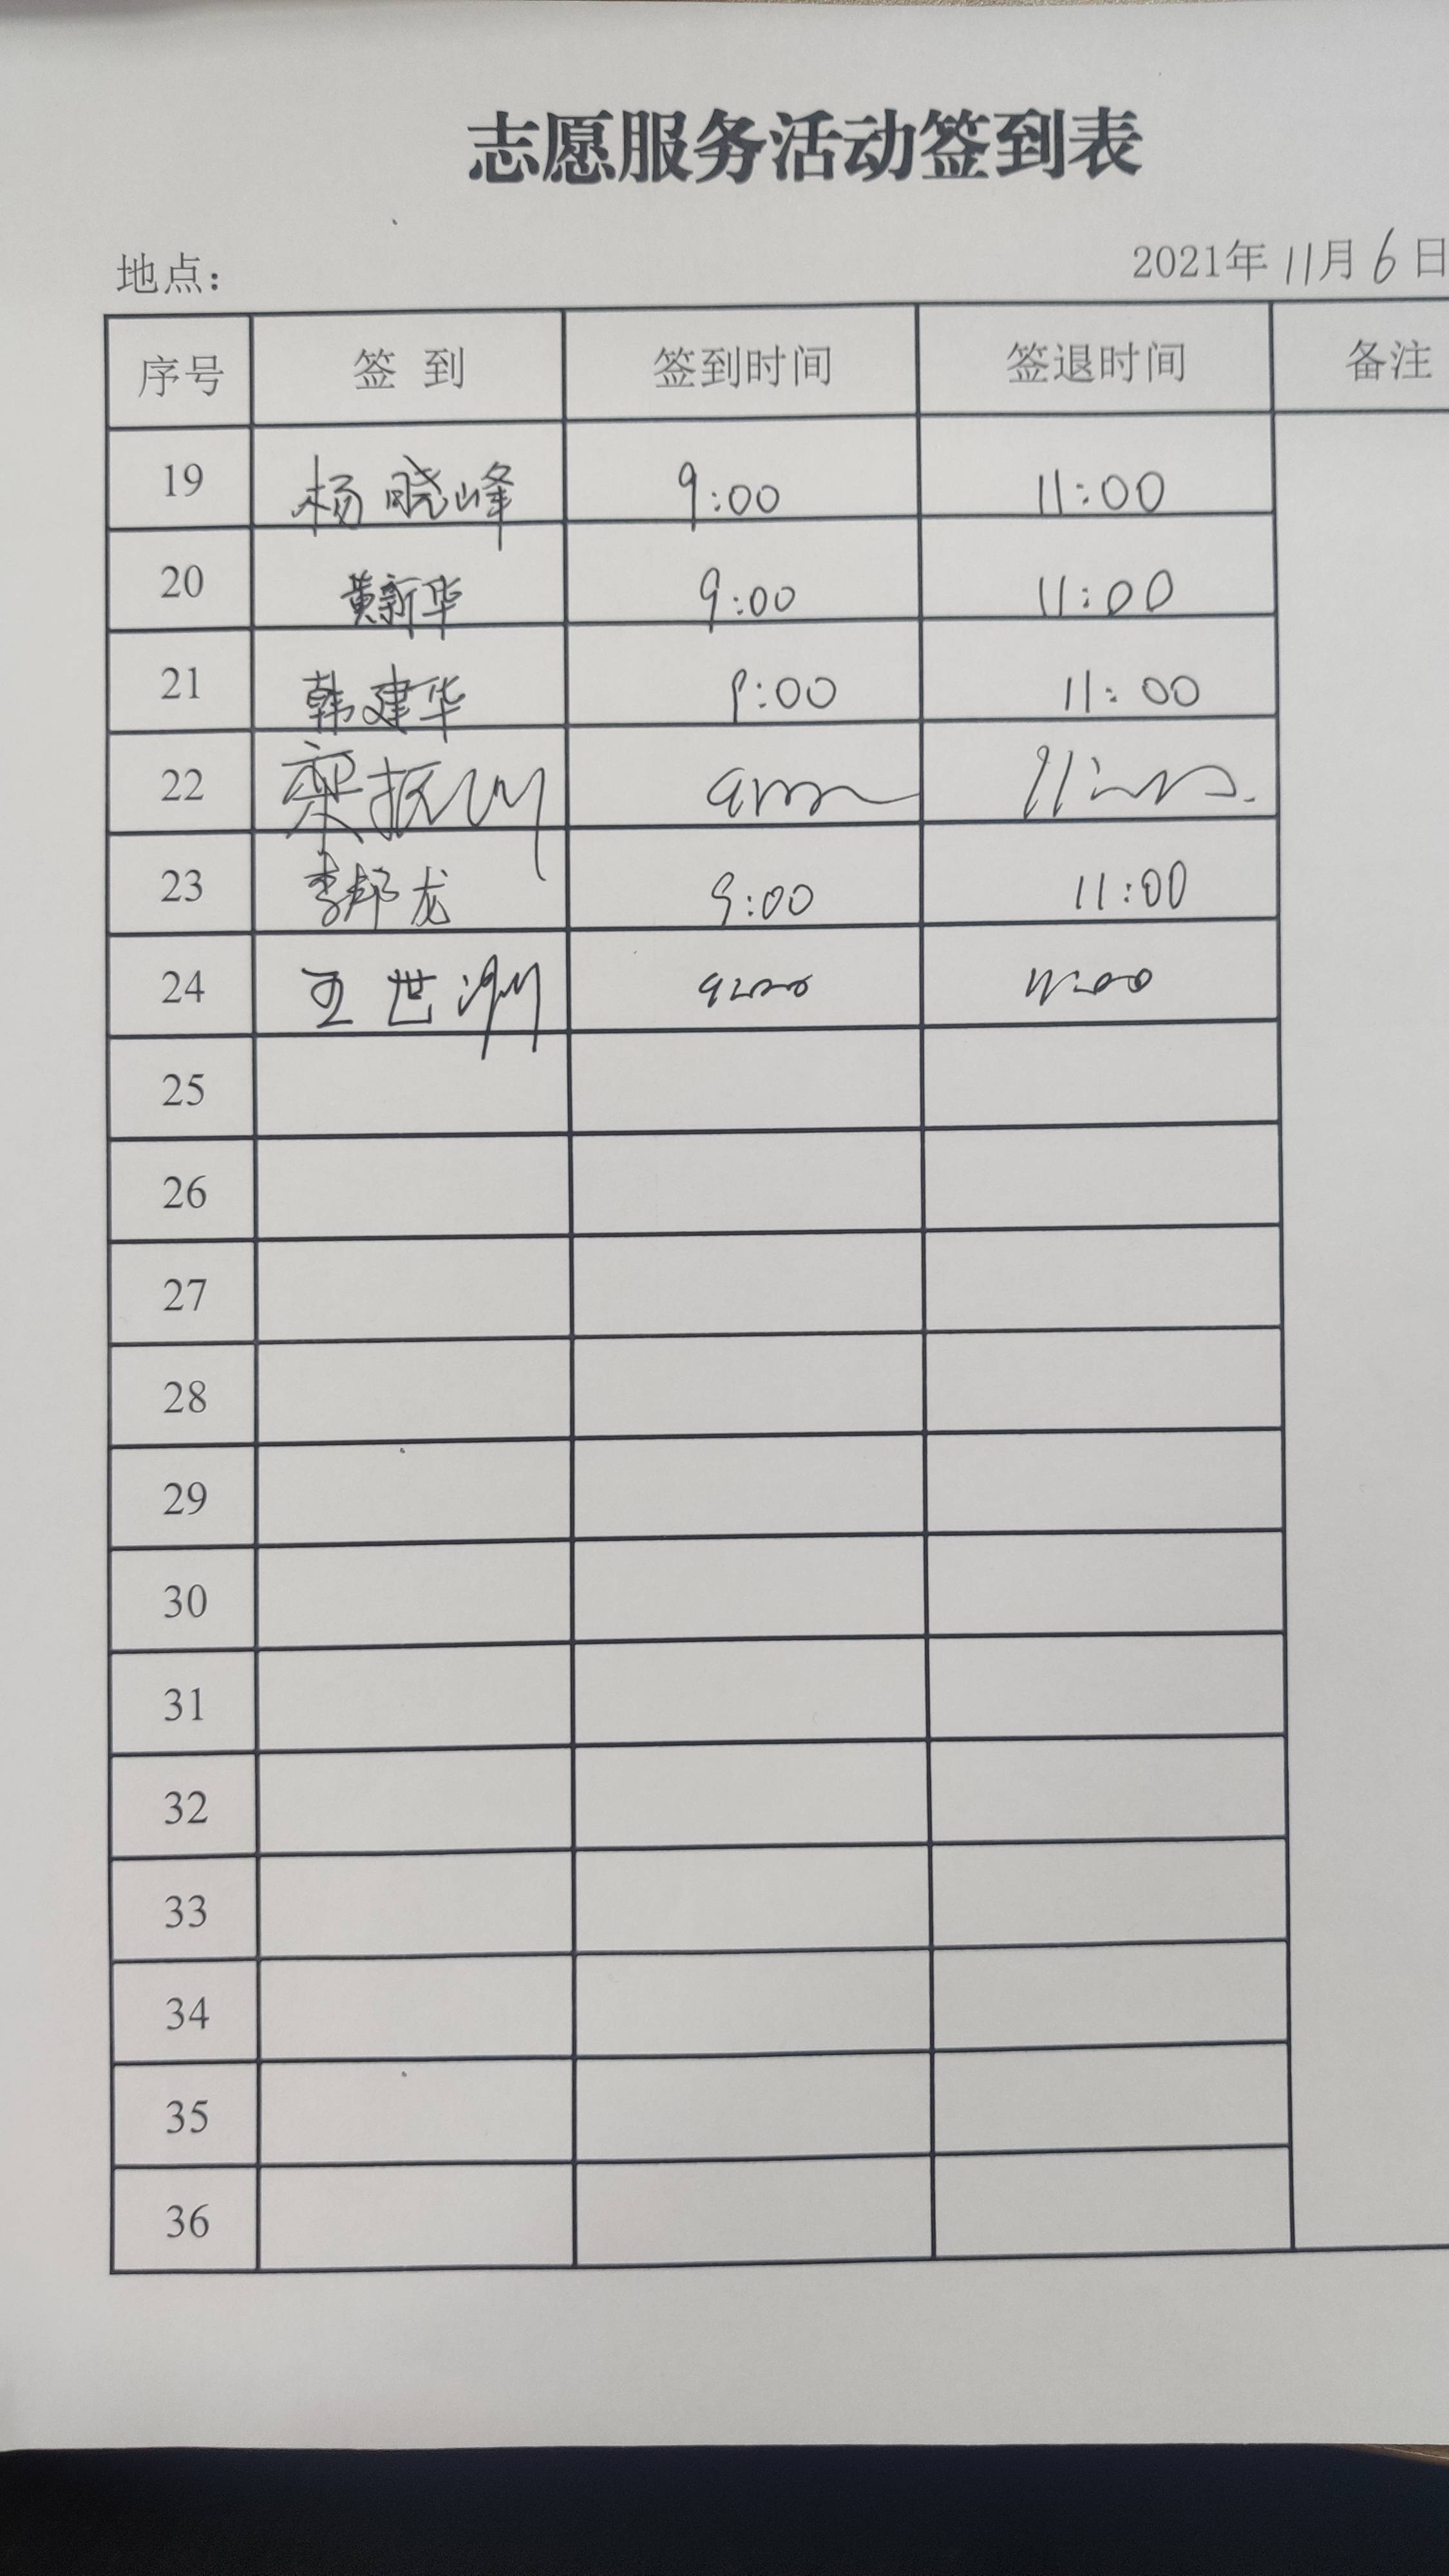 志愿服务活动签到表
地点：
2021年11月6日
序号 签到 签到时间 签退时间 备注
19 杨晓峰 9:00 11:00
20 黄新华 9:00 11:00
21 韩建华 9:00 11:00
22
23 李邦龙 9:00 11:00
24 王世洲 9:00 11:00
25
26
27
28
29
30
31
32
33
34
35
36